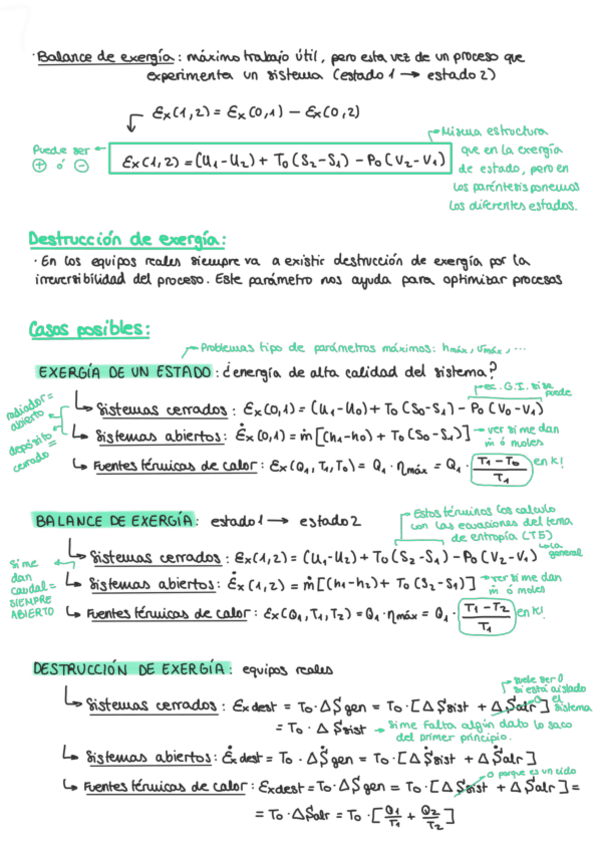 · Balance de exergía: máximo trabajo útil, pero esta vez de un proceso que
experimenta un sistema (estado 1 → estado 2)
Ex(1,2) = Ex(0,1) - Ex(0,2)
Puede ser
⊕ ó ⊖
Ex(1,2) = (U1-U2) + T0(S2-S1) - P0(V2-V1)
Misma estructura
que en la exergía
de estado, pero en
los paréntesis ponemos
los diferentes estados.
Destrucción de exergía:
· En los equipos reales siempre va a existir destrucción de exergía por la
irreversibilidad del proceso. Este parámetro nos ayuda para optimizar procesos
Casos posibles:
Problemas tipo de parámetros máximos: hmáx, vmáx, ...
EXERGÍA DE UN ESTADO: ¿energía de alta calidad del sistema?
radiador =
abierto
depósito =
cerrado
ec. G.I. si se
puede
Sistemas cerrados: Ex(0,1) = (U1-U0) + T0(S0-S1) - P0(V0-V1)
Sistemas abiertos: Ėx(0,1) = ṁ[(h1-h0) + T0(S0-S1)] → ver si me dan
ṁ ó moles
Fuentes térmicas de calor: Ex(Q1,T1,T0) = Q1 · ηmáx = Q1 · (T1-T0)/T1 en K!
BALANCE DE EXERGÍA: estado 1 → estado 2
Estos términos los calculo
con las ecuaciones del tema
de entropía (T5)
↳ la
general
Si me
dan
caudal =
SIEMPRE
ABIERTO
Sistemas cerrados: Ex(1,2) = (U1-U2) + T0(S2-S1) - P0(V2-V1)
Sistemas abiertos: Ėx(1,2) = ṁ[(h1-h2) + T0(S2-S1)] → ver si me dan
ṁ ó moles
Fuentes térmicas de calor: Ex(Q1,T1,T2) = Q1 · ηmáx = Q1 · (T1-T2)/T1 en K!
DESTRUCCIÓN DE EXERGÍA: equipos reales
suele ser 0
si está aislado
el
sistema
Sistemas cerrados: Exdest = T0 · ΔSgen = T0 · [ΔSsist + ΔSalr] 0
= T0 · ΔSsist → Si me falta algún dato lo saco
del primer principio.
Sistemas abiertos: Ėxdest = T0 · ΔṠgen = T0 · [ΔṠsist + ΔṠalr]
0 porque es un ciclo
Fuentes térmicas de calor: Exdest = T0 · ΔSgen = T0 · [ΔSsist + ΔSalr] =
= T0 · ΔSalr = T0 · [Q1/T1 + Q2/T2]